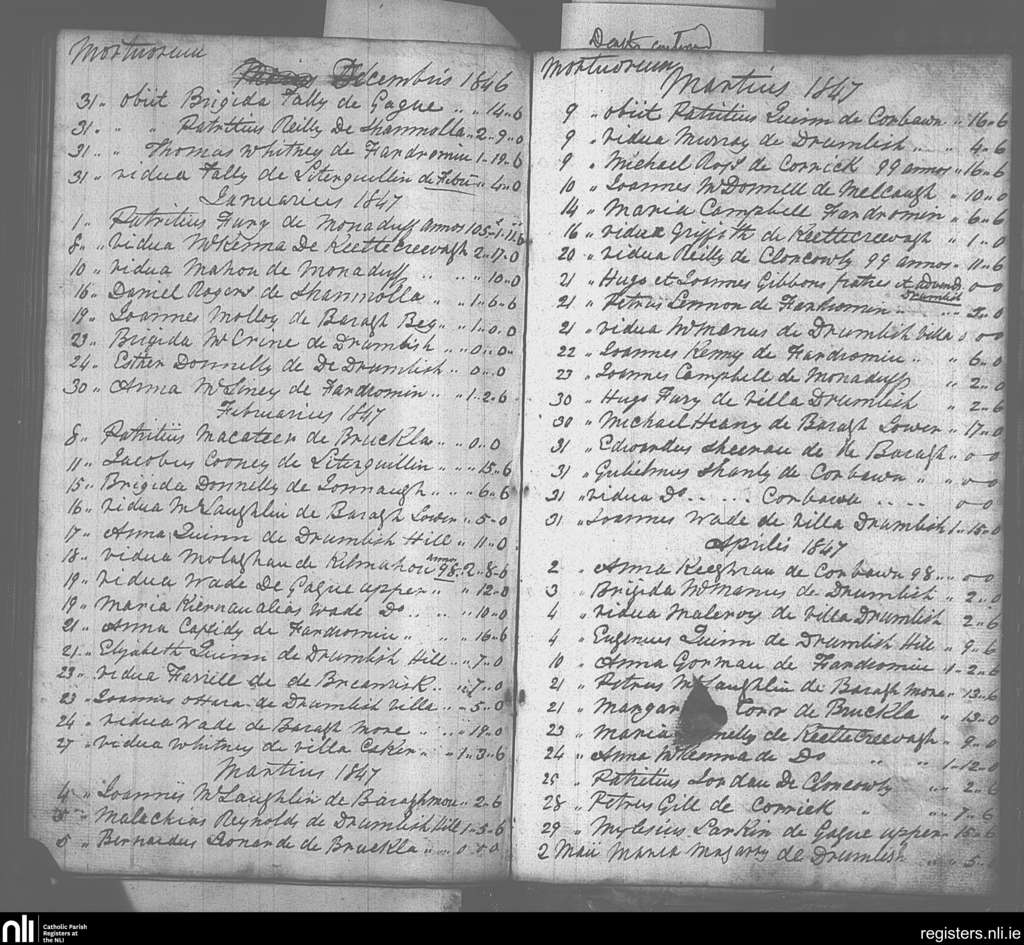 Mortuorum
Decembris 1846
31 .. obiit Brigida Tally de Gague .. 14..6
31 .. .. Patritius Reilly De Shanmolla .. 2..9..0
31 .. .. Thomas Whitney de Fardromin 1..19..6
31 .. vidua Tally de Literguillin de Febr .. 4..0
Januarius 1847
1 .. Patritius Fury de Monaduff annos 105
8 .. vidua McKenna De Keeltecreevagh 2..17..0
10 .. vidua Mahon de Monaduff .. 10..0
16 .. Daniel Rogers de Shanmolla .. 1..6..6
19 .. Joannes Molloy de Baragh Beg .. 1..0..0
23 .. Brigida McCrine de Drumlish .. 0..0
24 .. Esther Donnelly de De Drumlish .. 0..0
30 .. Anna de Fardromin .. 1..2..6
Februarius 1847
8 .. Patritius Macateer de Bruckla .. 0..0
11 .. Jacobus Cooney de Literguillin .. 15..6
15 .. Brigida Donnelly de .. 6..6
16 .. vidua McLaughlin de Baragh Lower .. 5..0
17 .. Anna Quinn de Drumlish Hill .. 11..0
18 .. vidua de Kilmahon annos 98 .. 2..8..6
19 .. vidua Wade De Gague upper .. 12..0
19 .. Maria Kiernan alias Wade Do .. 10..0
21 .. Anna Cassidy de Fardromin .. 16..6
21 .. Elizabeth Quinn de Drumlish Hill .. 7..0
23 .. vidua Farrell de de Breanrisk .. 7..0
23 .. Joannes oHara de Drumlish villa .. 5..0
24 .. vidua Wade de Baragh More .. 19..0
27 .. vidua Whitney de villa .. 1..3..6
Martius 1847
4 .. Joannes McLaughlin de Baraghmore .. 2..6
5 .. Malachias Reynolds de Drumlish Hill 1..3..6
5 .. Bernardus Leonard de Bruckla .. 0..0..0
Mortuorum
Martius 1847
9 .. obiit Patritius Quinn de Corbawn .. 16..6
9 .. vidua Murray de Drumlish .. 4..6
9 .. Michael Ross de Cornick 99 annos .. 16..6
10 .. Joannes McDonnell de Melcaugh .. 10..0
14 .. Maria Campbell Fardromin .. 6..6
16 .. vidua Griffith de Keeltecreevagh .. 1..0
20 .. vidua Reilly de Cloncowly 99 annos .. 11..6
21 .. Hugo et Joannes Gibbons fratres 0..0
Drumlish
21 .. Petrus Lennon de Fardromin .. 2..0
21 .. vidua McManus de Drumlish villa 0..0
22 .. Joannes Kenny de Fardromin .. 6..0
23 .. Joannes Campbell de Monaduff .. 2..0
30 .. Hugo Fury de villa Drumlish .. 2..6
30 .. Michael Heany de Baragh Lower .. 17..0
31 .. Edwardus Sheeran de de Baragh .. 0..0
31 .. Gulielmus Shanly de Corbawn .. 0..0
31 .. vidua Do .. .. Corbawn .. 0..0
31 .. Joannes Wade de villa Drumlish 1..15..0
Aprilis 1847
2 .. Anna Keeghran de Corbawn 98 .. 0..0
3 .. Brigida McManus de Drumlish .. 2..0
4 .. vidua Maleroy de villa Drumlish 2..6
4 .. Eugenius Quinn de Drumlish Hill .. 9..6
10 .. Anna Gorman de Fardromin 1..2..6
21 .. Petrus McLaughlin de Baragh More .. 13..6
21 .. Torr de Bruckla .. 13..0
23 .. Maria de Keeltecreevagh .. 9..0
24 .. Anna McKenna de Do .. 1..12..0
25 .. Patritius Jordan De Cloncowly .. 2..6
28 .. Petrus Gill de Cornick .. 7..6
29 .. Mylesius Larkin de Gague upper .. 15..6
2 Maii Maria Magarry de Drumlish .. 5
nli
Catholic Parish
Registers at
the NLI
registers.nli.ie